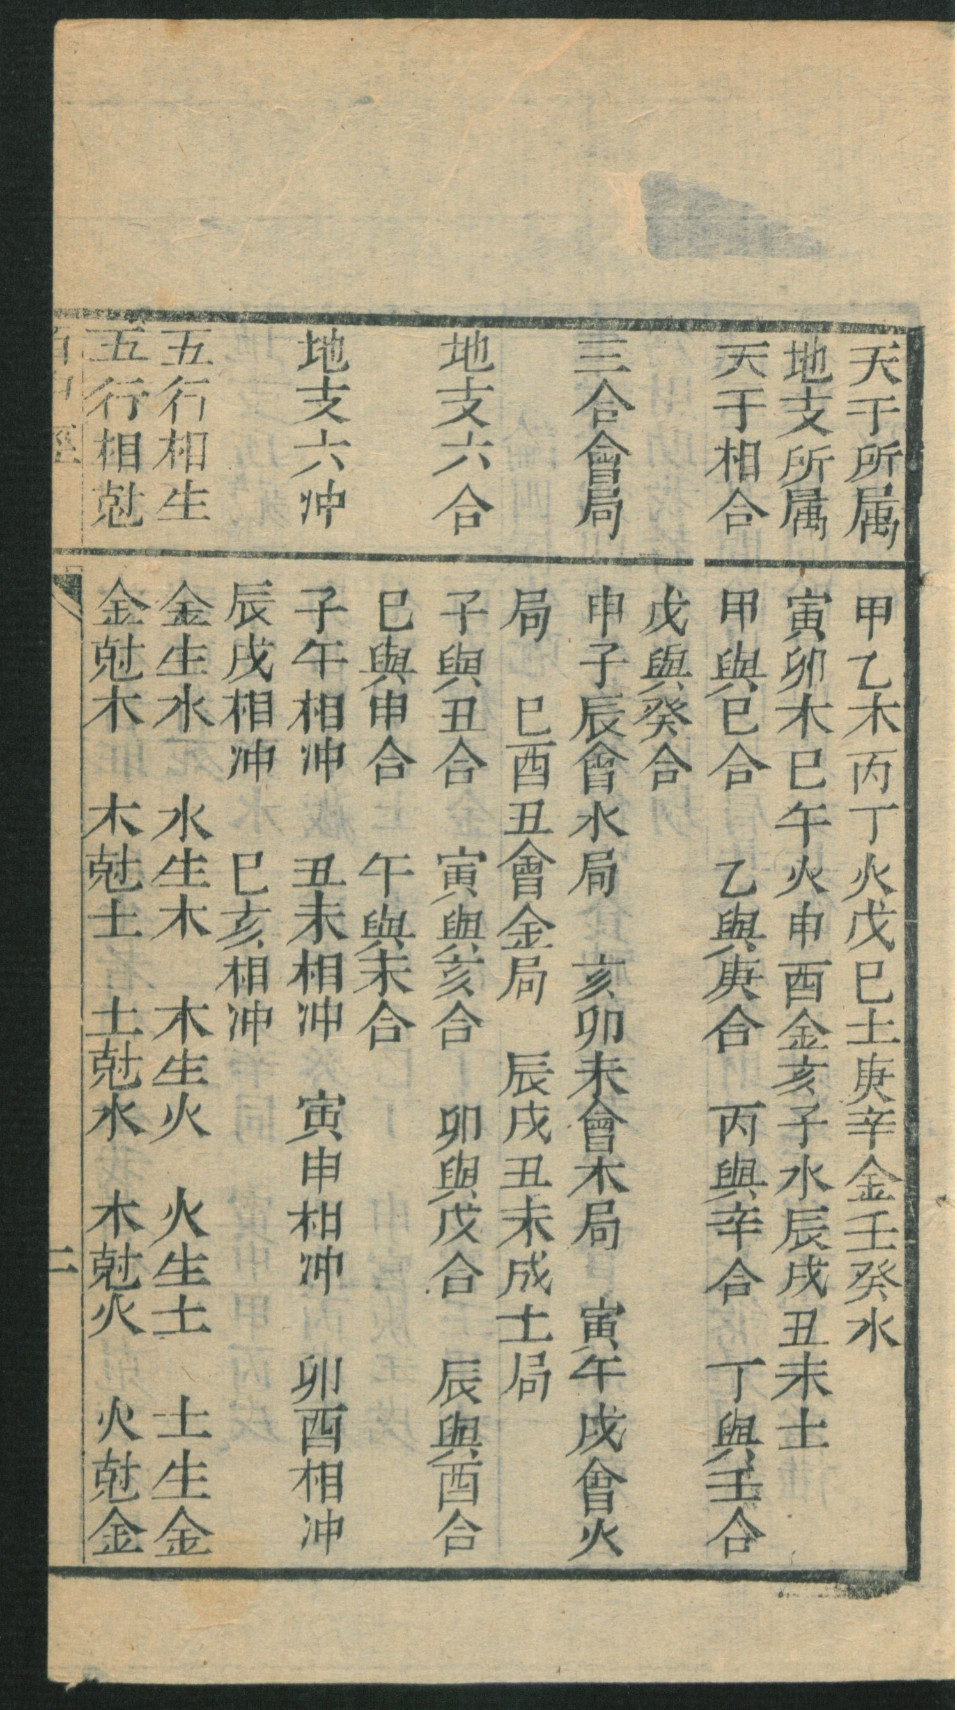 天干所属　甲乙木丙丁火戊巳土庚辛金壬癸水
地支所属　寅卯木巳午火申酉金亥子水辰戌丑未土
天于相合　甲與巳合　乙與庚合　丙與辛合　丁與壬合
戊與癸合
三合會局　申子辰會水局　亥卯未會木局　寅午戌會火
局　巳酉丑會金局　辰戌丑未成土局
地支六合　子與丑合　寅與亥合　卯與戌合　辰與酉合
巳與申合　午與未合
地支六冲　子午相冲　丑未相冲　寅申相冲　卯酉相冲
辰戌相冲　巳亥相冲
五行相生　金生水　水生木　木生火　火生土　土生金
五行相尅　金尅木　木尅土　土尅水　木尅火　火尅金
二